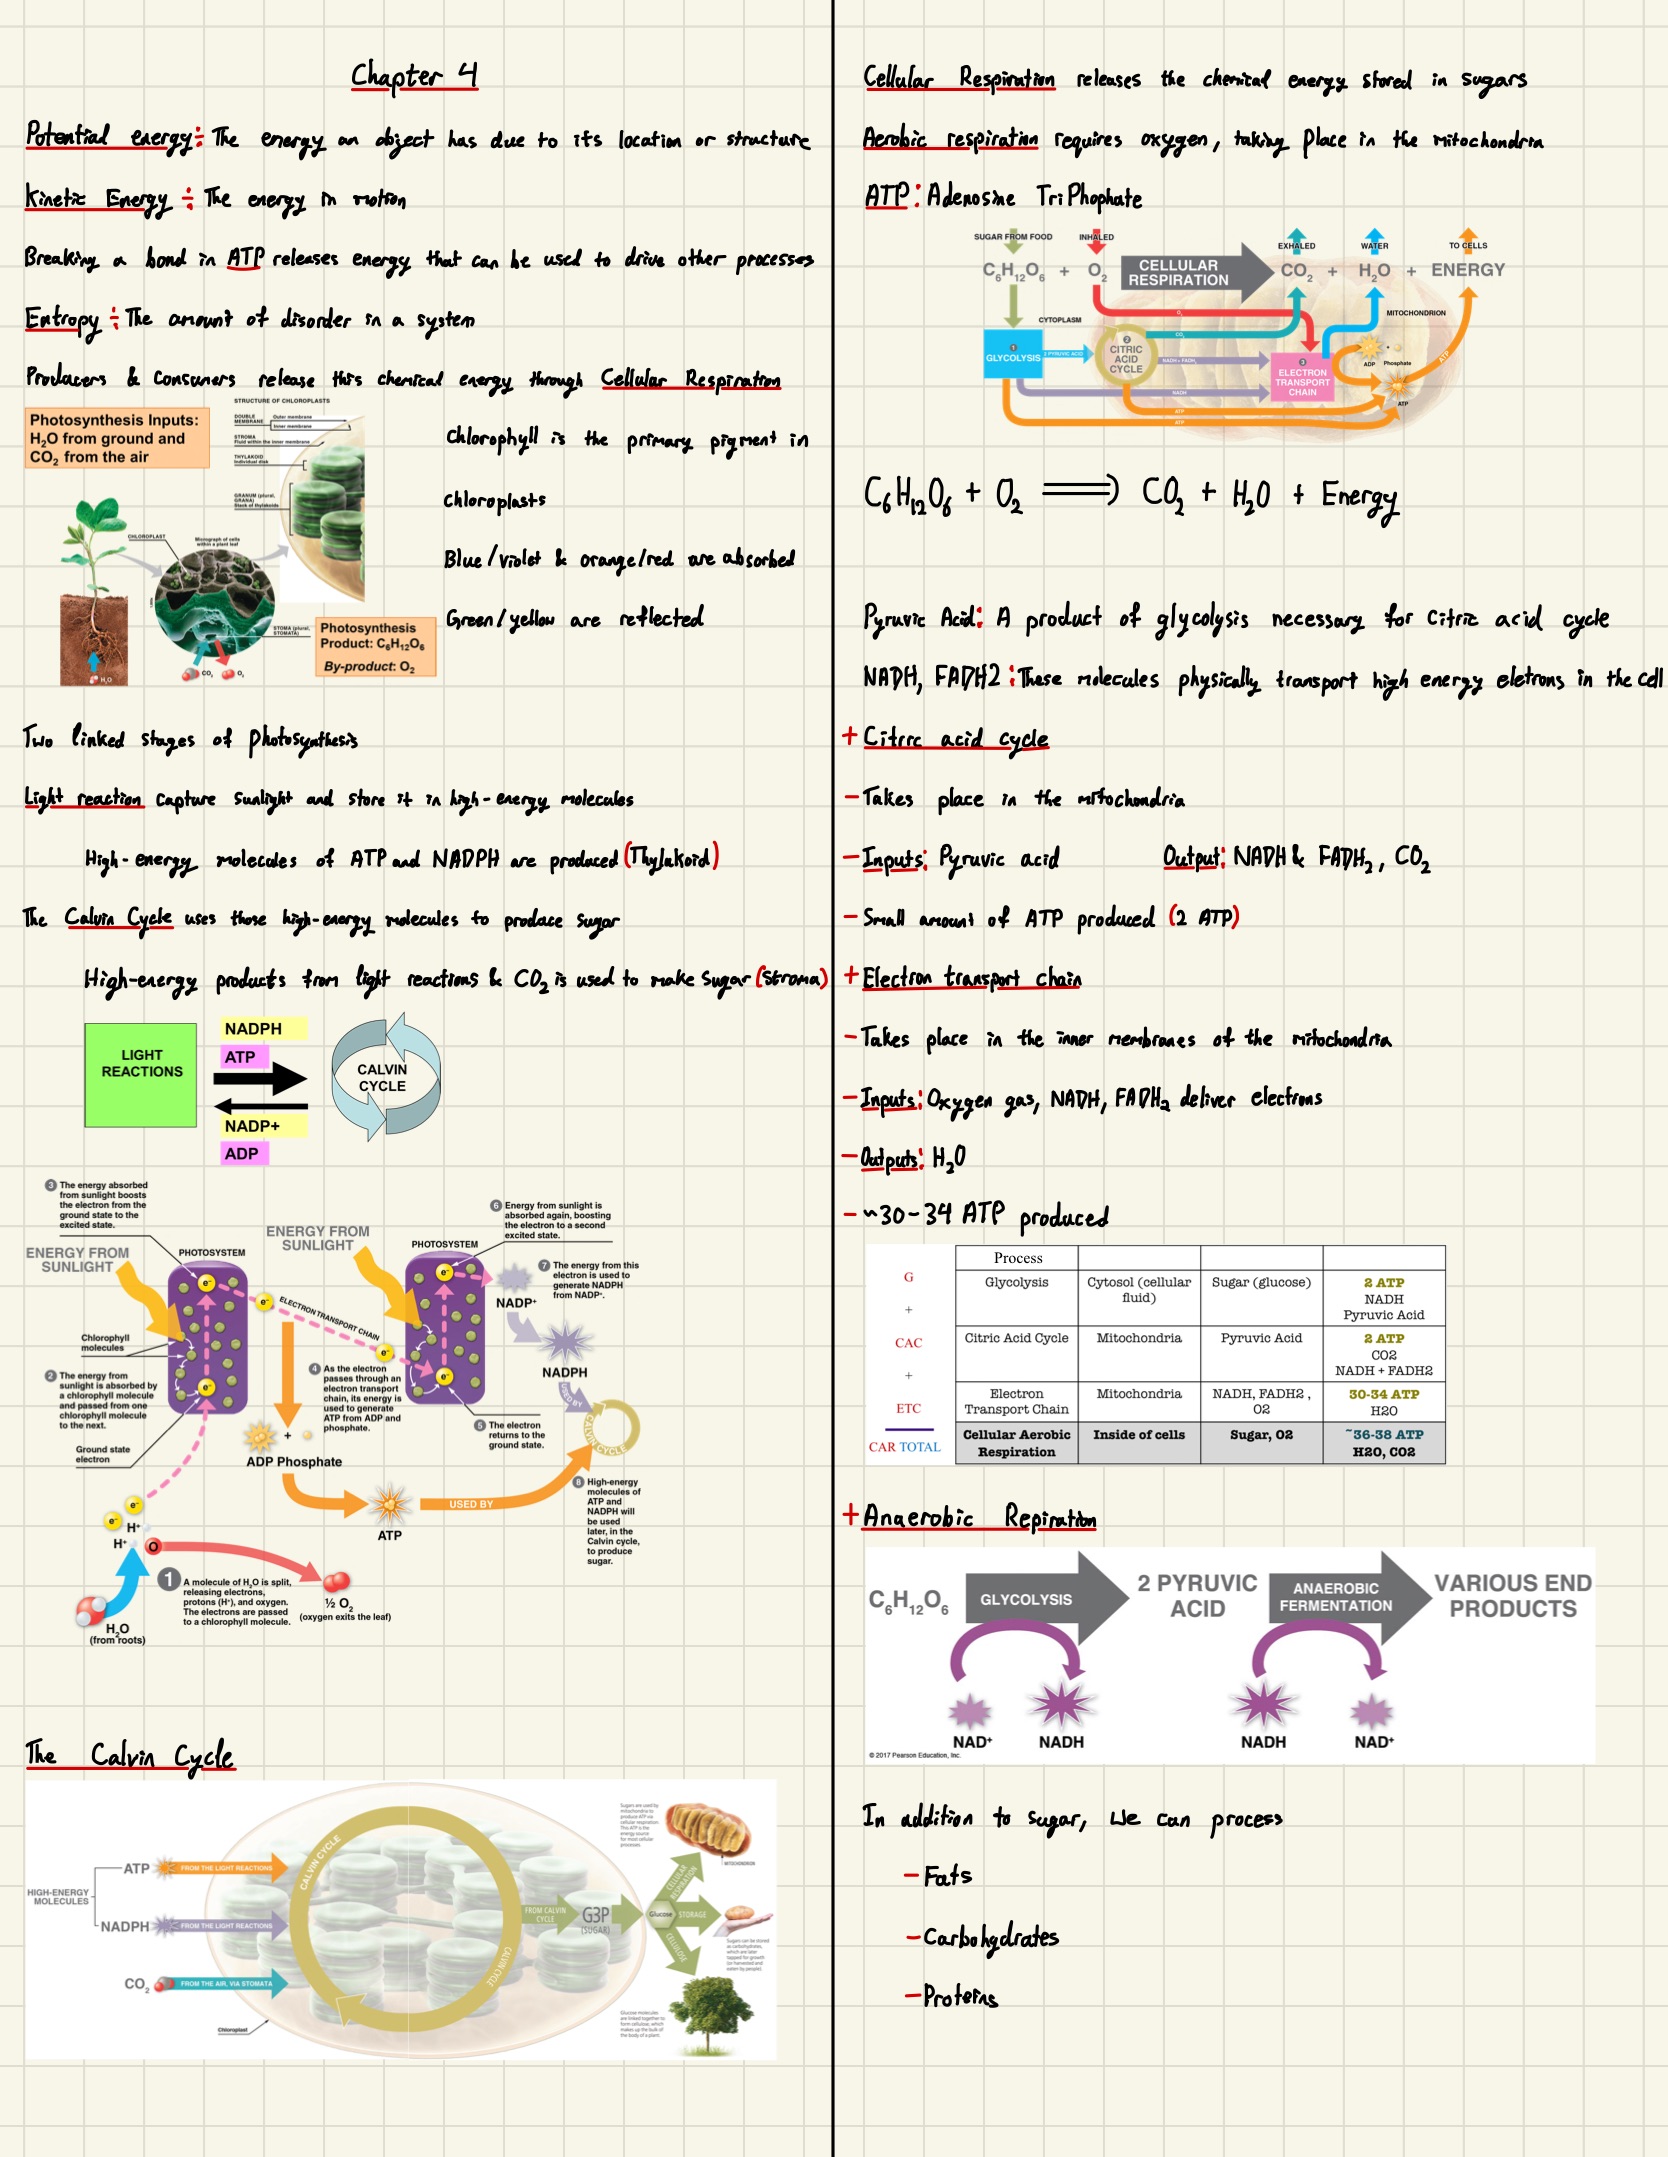 Chapter 4
Potential energy: The energy an object has due to its location or structure
Kinetic Energy : The energy in motion
Breaking a bond in ATP releases energy that can be used to drive other processes
Entropy : The amount of disorder in a system
Producers & Consumers release this chemical energy through Cellular Respiration
Photosynthesis Inputs:
H₂O from ground and
CO₂ from the air
STRUCTURE OF CHLOROPLASTS
DOUBLE MEMBRANE
Outer membrane
Inner membrane
STROMA
Fluid within the inner membrane
THYLAKOID
Individual disk
GRANUM (plural, GRANA)
Stack of thylakoids
CHLOROPLAST
Micrograph of cells
within a plant leaf
STOMA (plural, STOMATA)
H₂O
CO₂
O₂
Photosynthesis
Product: C₆H₁₂O₆
By-product: O₂
Chlorophyll is the primary pigment in
chloroplasts
Blue/violet & orange/red are absorbed
Green/yellow are reflected
Two linked stages of photosynthesis
Light reaction capture sunlight and store it in high-energy molecules
High-energy molecules of ATP and NADPH are produced (Thylakoid)
The Calvin Cycle uses those high-energy molecules to produce sugar
High-energy products from light reactions & CO₂ is used to make sugar (Stroma)
LIGHT
REACTIONS
NADPH
ATP
NADP+
ADP
CALVIN
CYCLE
3 The energy absorbed
from sunlight boosts
the electron from the
ground state to the
excited state.
ENERGY FROM
SUNLIGHT
PHOTOSYSTEM
ENERGY FROM
SUNLIGHT
PHOTOSYSTEM
6 Energy from sunlight is
absorbed again, boosting
the electron to a second
excited state.
7 The energy from this
electron is used to
generate NADPH
from NADP⁺.
NADP⁺
NADPH
USED BY
CALVIN CYCLE
e⁻
e⁻
ELECTRON TRANSPORT CHAIN
e⁻
e⁻
e⁻
e⁻
Chlorophyll
molecules
2 The energy from
sunlight is absorbed by
a chlorophyll molecule
and passed from one
chlorophyll molecule
to the next.
Ground state
electron
4 As the electron
passes through an
electron transport
chain, its energy is
used to generate
ATP from ADP and
phosphate.
5 The electron
returns to the
ground state.
+
ADP Phosphate
ATP
USED BY
8 High-energy
molecules of
ATP and
NADPH will
be used
later, in the
Calvin cycle,
to produce
sugar.
e⁻
e⁻
H⁺
H⁺
O
1 A molecule of H₂O is split,
releasing electrons,
protons (H⁺), and oxygen.
The electrons are passed
to a chlorophyll molecule.
½ O₂
(oxygen exits the leaf)
H₂O
(from roots)
The Calvin Cycle
HIGH-ENERGY
MOLECULES
ATP
FROM THE LIGHT REACTIONS
NADPH
FROM THE LIGHT REACTIONS
CO₂
FROM THE AIR, VIA STOMATA
Chloroplast
CALVIN CYCLE
CALVIN CYCLE
FROM CALVIN
CYCLE
G3P
(SUGAR)
Glucose
CELLULAR RESPIRATION
STORAGE
CELLULOSE
Sugars are used by
mitochondria to
produce ATP via
cellular respiration.
This ATP is the
energy source
for most cellular
processes.
MITOCHONDRION
Sugars can be stored
as carbohydrates,
which are later
tapped for growth
(or harvested and
eaten by people).
Glucose molecules
are linked together to
form cellulose, which
makes up the bulk of
the body of a plant.
Cellular Respiration releases the chemical energy stored in sugars
Aerobic respiration requires oxygen, taking place in the mitochondria
ATP: Adenosine TriPhophate
SUGAR FROM FOOD
INHALED
EXHALED
WATER
TO CELLS
C₆H₁₂O₆ + O₂
CELLULAR
RESPIRATION
CO₂ + H₂O + ENERGY
CYTOPLASM
MITOCHONDRION
O₂
CO₂
1 GLYCOLYSIS
2 PYRUVIC ACID
2 CITRIC
ACID
CYCLE
NADH + FADH₂
NADH
3 ELECTRON
TRANSPORT
CHAIN
ADP
+
Phosphate
ATP
ATP
ATP
ATP
C₆H₁₂O₆ + O₂ ⟹ CO₂ + H₂O + Energy
Pyruvic Acid: A product of glycolysis necessary for citric acid cycle
NADH, FADH2 : These molecules physically transport high energy eletrons in the cell
+ Citric acid cycle
- Takes place in the mitochondria
- Inputs: Pyruvic acid Output: NADH & FADH₂, CO₂
- Small amount of ATP produced (2 ATP)
+ Electron transport chain
- Takes place in the inner membranes of the mitochondria
- Inputs: Oxygen gas, NADH, FADH₂ deliver electrons
- Outputs: H₂O
- ~30-34 ATP produced
Process
G
Glycolysis
Cytosol (cellular
fluid)
Sugar (glucose)
2 ATP
NADH
Pyruvic Acid
+
CAC
Citric Acid Cycle
Mitochondria
Pyruvic Acid
2 ATP
CO2
NADH + FADH2
+
ETC
Electron
Transport Chain
Mitochondria
NADH, FADH2 ,
O2
30-34 ATP
H2O
CAR TOTAL
Cellular Aerobic
Respiration
Inside of cells
Sugar, O2
~36-38 ATP
H2O, CO2
+ Anaerobic Repiration
C₆H₁₂O₆
GLYCOLYSIS
2 PYRUVIC
ACID
ANAEROBIC
FERMENTATION
VARIOUS END
PRODUCTS
NAD⁺
NADH
NADH
NAD⁺
© 2017 Pearson Education, Inc.
In addition to sugar, we can process
- Fats
- Carbohydrates
- Proteins